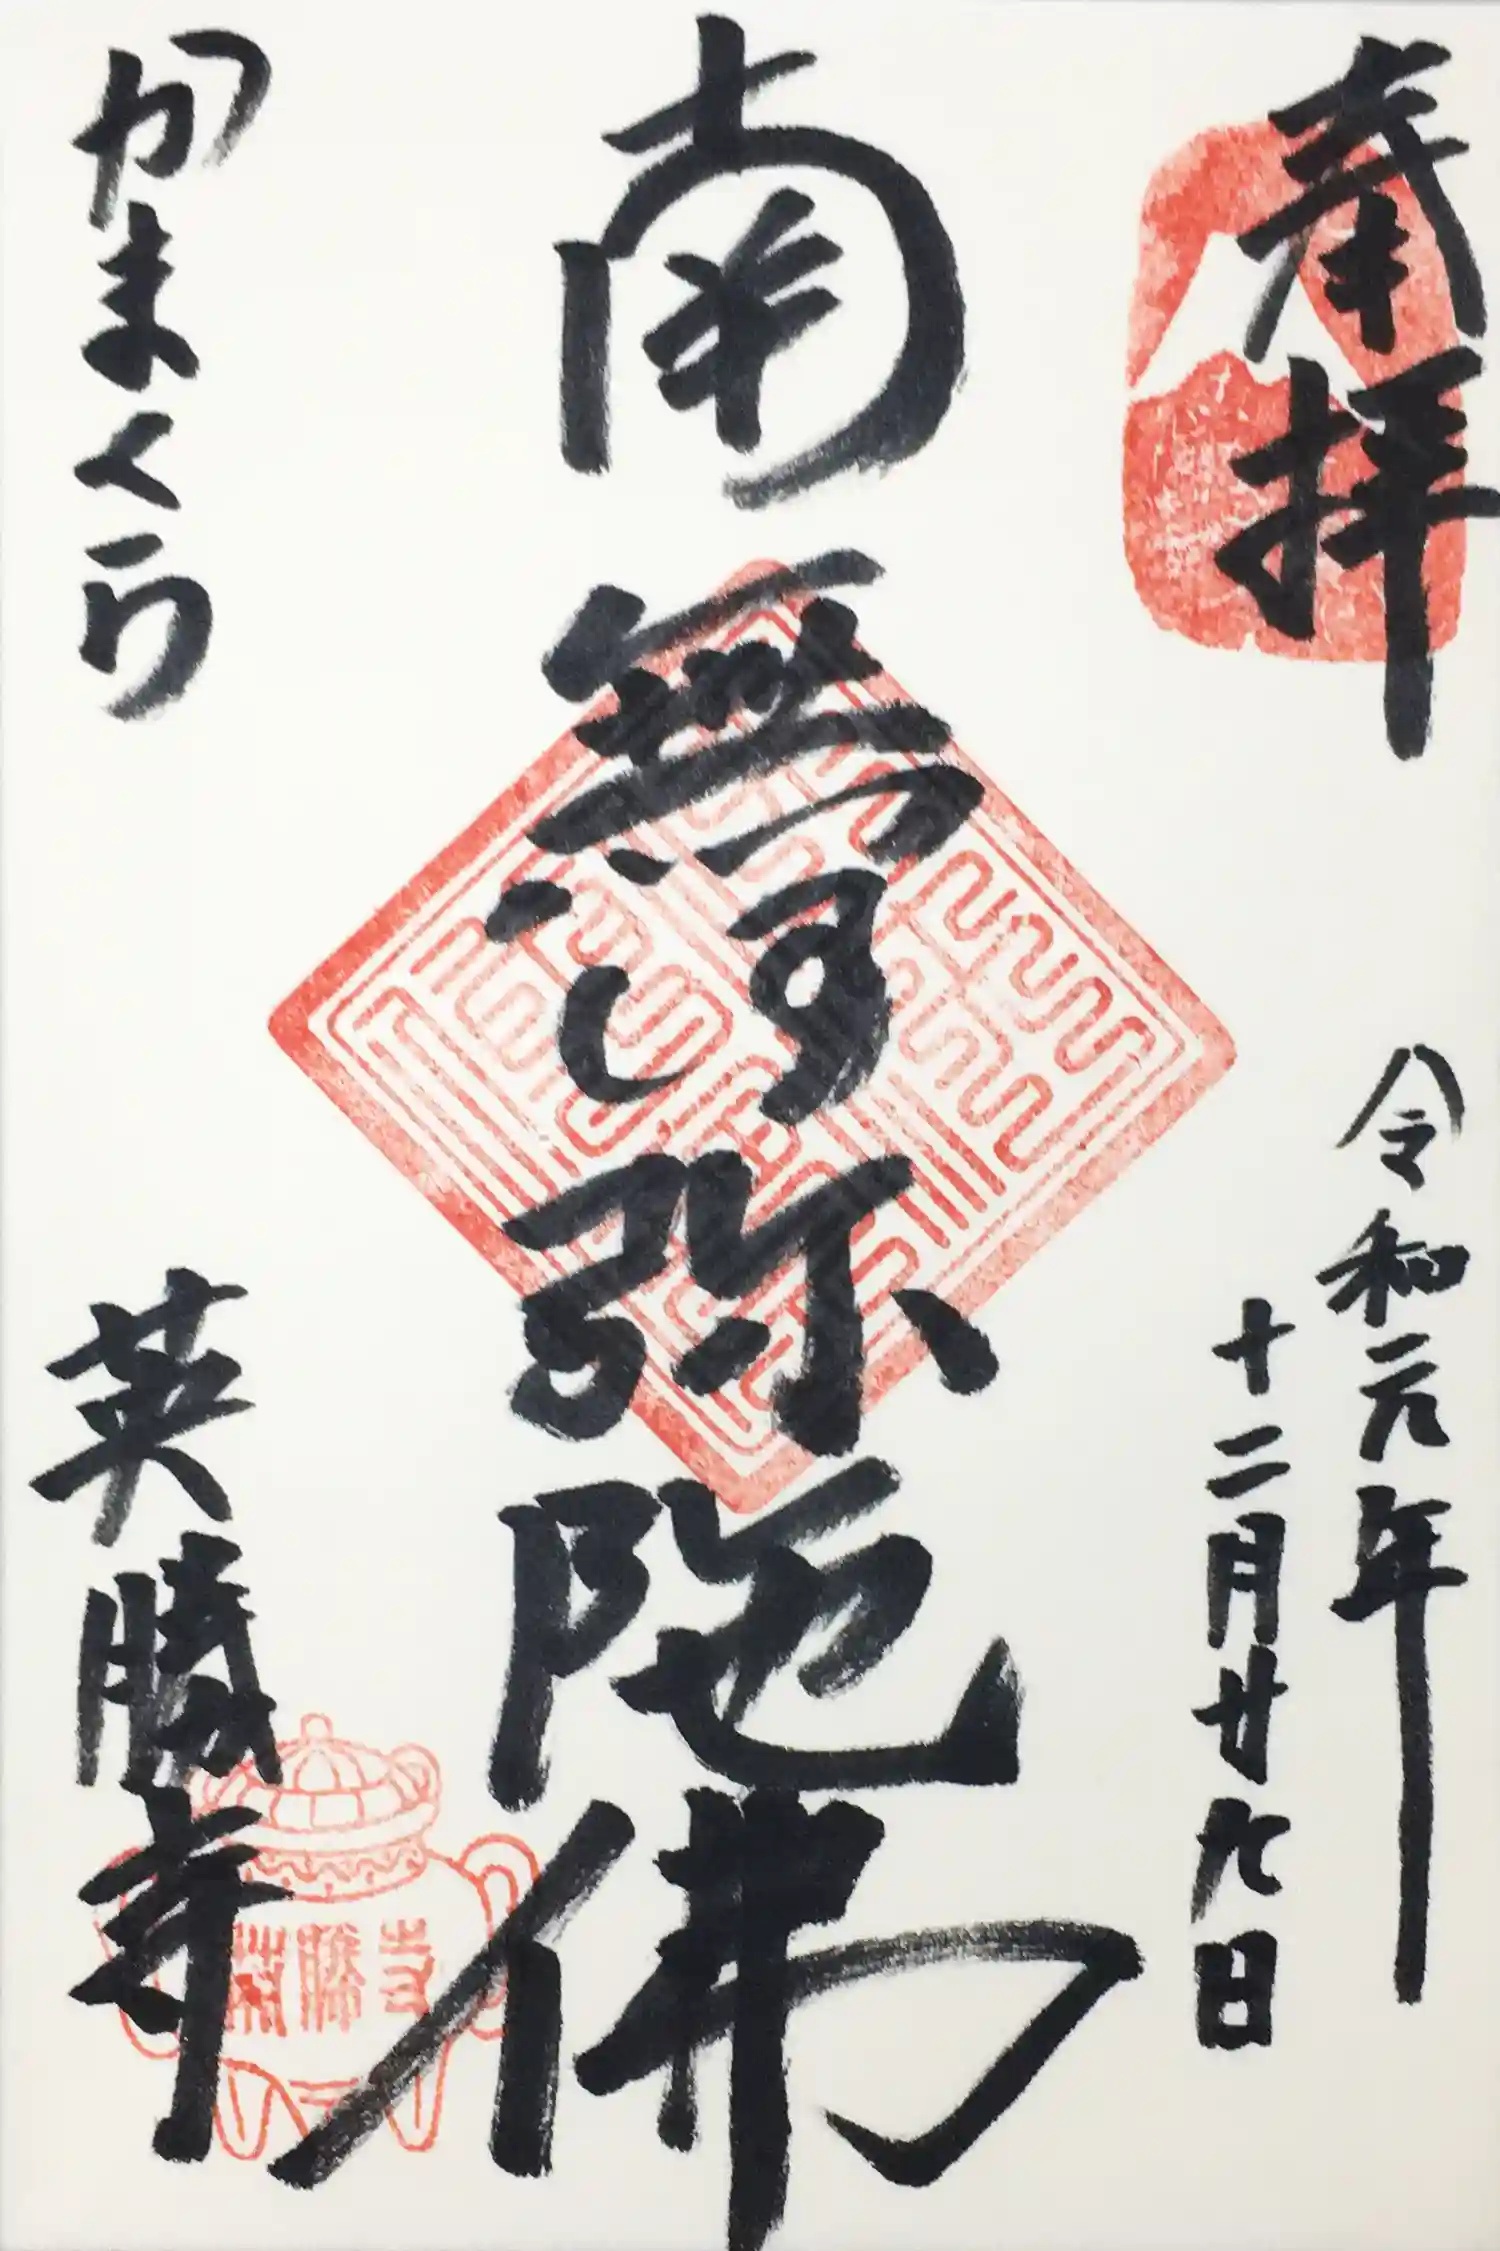 奉拝
令和元年
十二月廿九日
南無阿弥陀佛
かまくら
英勝寺
英勝寺